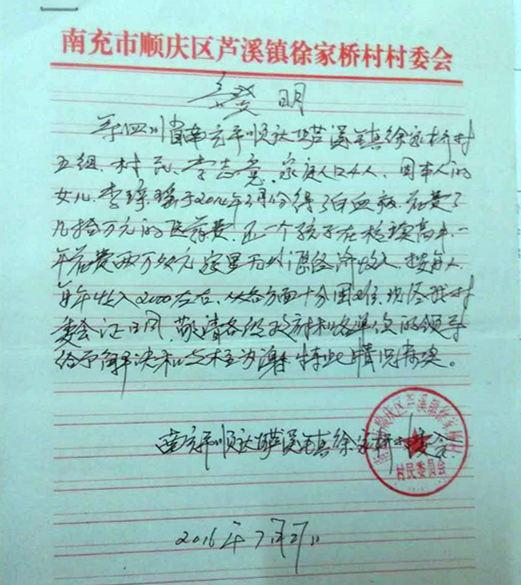 南充市顺庆区芦溪镇徐家桥村村委会
证明
四川省南充市顺庆区芦溪镇徐家桥村
五组,村民,李志 家庭人口4人,因本人的
女儿,李 于2016年 月份得了白血病,花费了
几拾万元的医药费,还一个孩子在校读高中,一
年花费两万余元,家里无 经济收入,按每人
每年收入2000左右,从各方面十分困难,现 我村
委会证明,敬请各级政府和各单位的领导
给予解决和 为谢 特此情况
南充市顺庆区芦溪镇徐家桥村委会
村民委员会
2016年7月27日